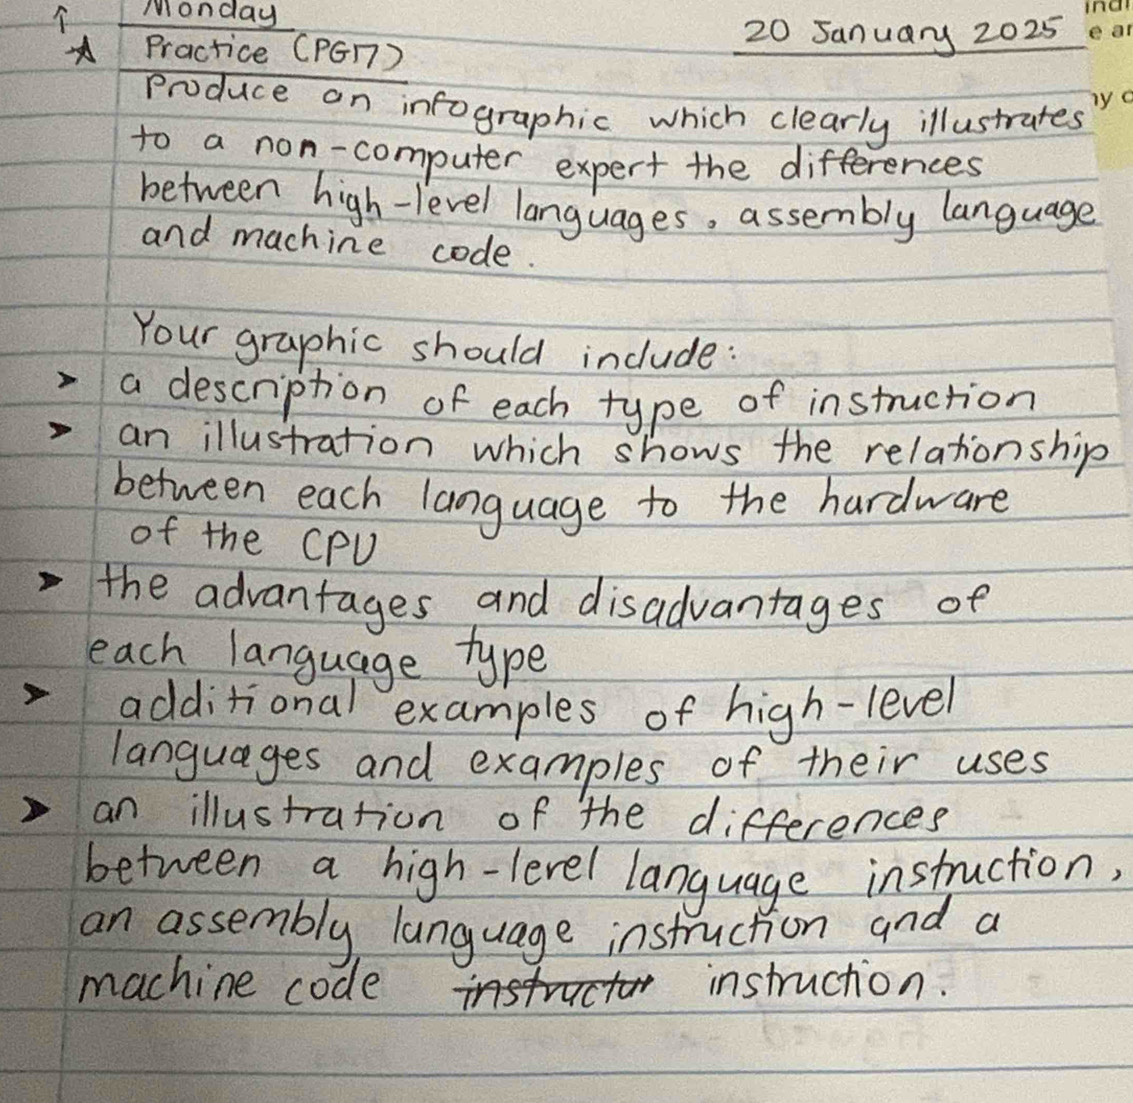 Monday
20 January 2025
Practice (PG17)
Produce an infographic which clearly illustrates
to a non-computer expert the differences
between high-level languages, assembly language
and machine code.
Your graphic should include:
➤ a description of each type of instruction
➤ an illustration which shows the relationship
between each language to the hardware
of the CPU
➤ the advantages and disadvantages of
each language type
➤ additional examples of high-level
languages and examples of their uses
➤ an illustration of the differences
between a high-level language instruction,
an assembly language instruction and a
machine code instruction.